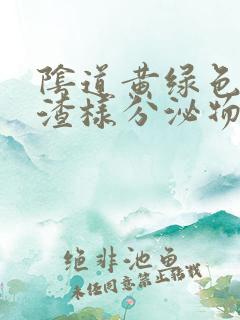 陰道黄绿色
渣様分泌物
绝非池鱼
未经同意禁止转载